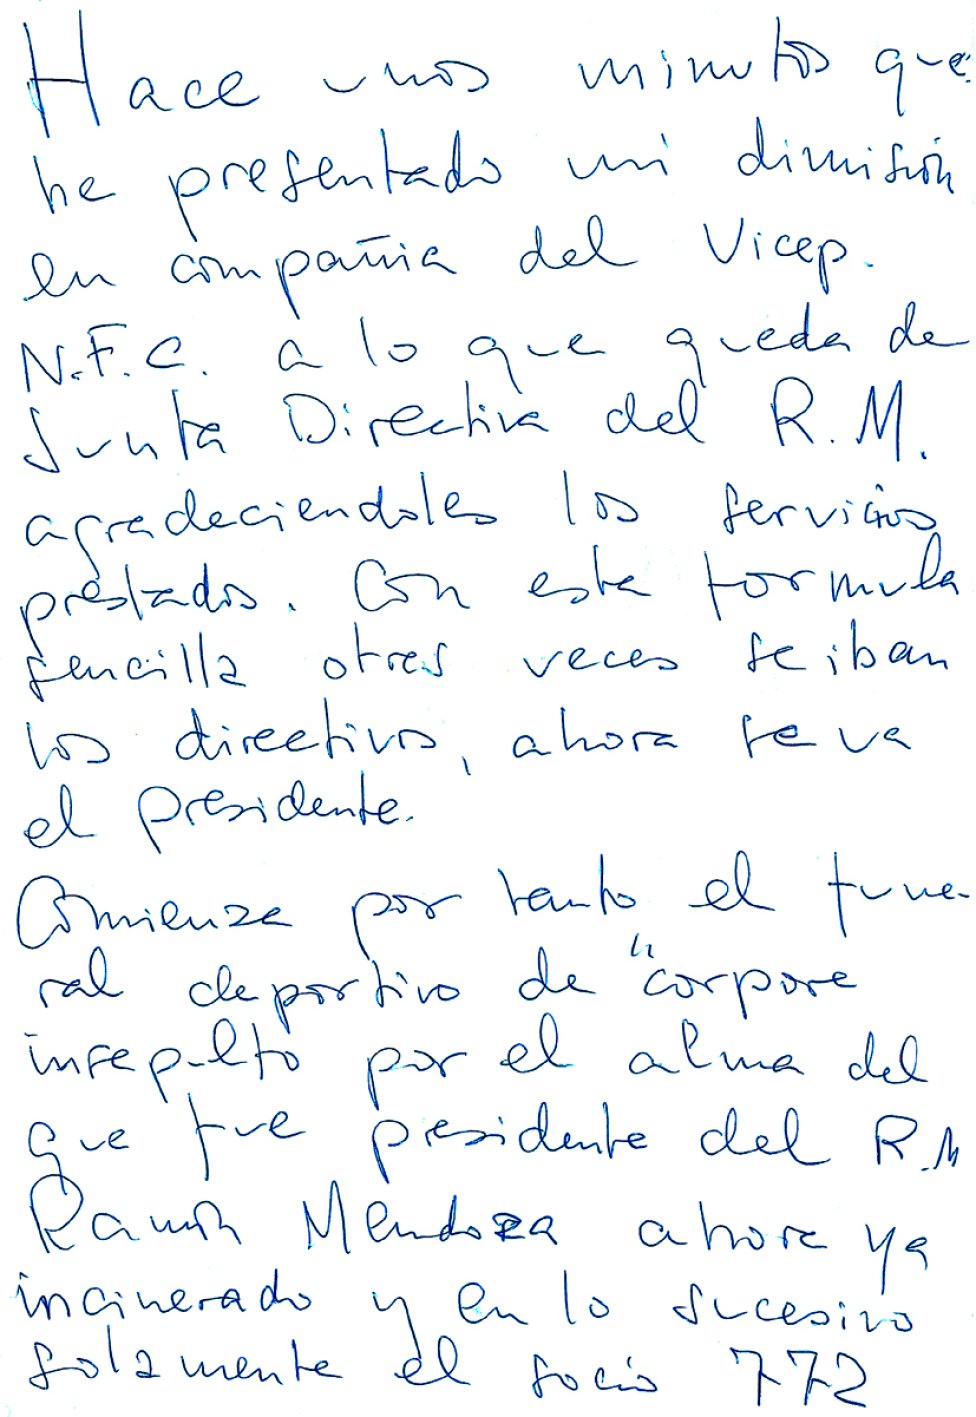 Hace unos minutos que
he presentado mi dimisión
en compañia del Vicep.
N.F.C. a lo que queda de
Junta Directiva del R.M.
agradeciendoles los servicios
prestados. Con esta formula
sencilla otras veces se iban
los directivos, ahora se va
el presidente.
Comienza por tanto el fune-
ral deportivo de "corpore
insepulto por el alma del
que fue presidente del R.M
Ramón Mendoza ahora ya
incinerado y en lo sucesivo
solamente el socio 772